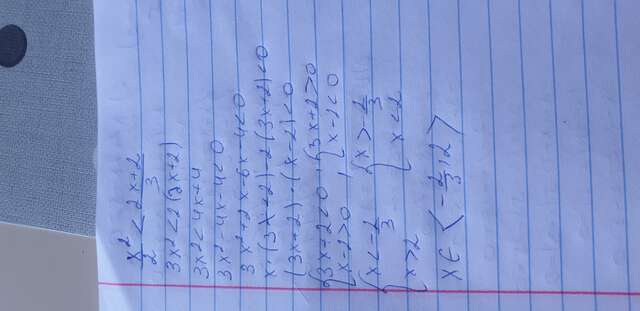 x²/2 < 2x+2/3
3x² < 2(2x+2)
3x² < 4x+4
3x²-4x-4<0
3x²+2x-6x-4<0
x·(3x+2)-2(3x+2)<0
(3x+2)·(x-2)<0
{3x+2<0, {3x+2>0
{x-2>0 , {x-2<0
{x<-2/3 {x>-2/3
{x>2 {x<2
x∈<-2/3;2>